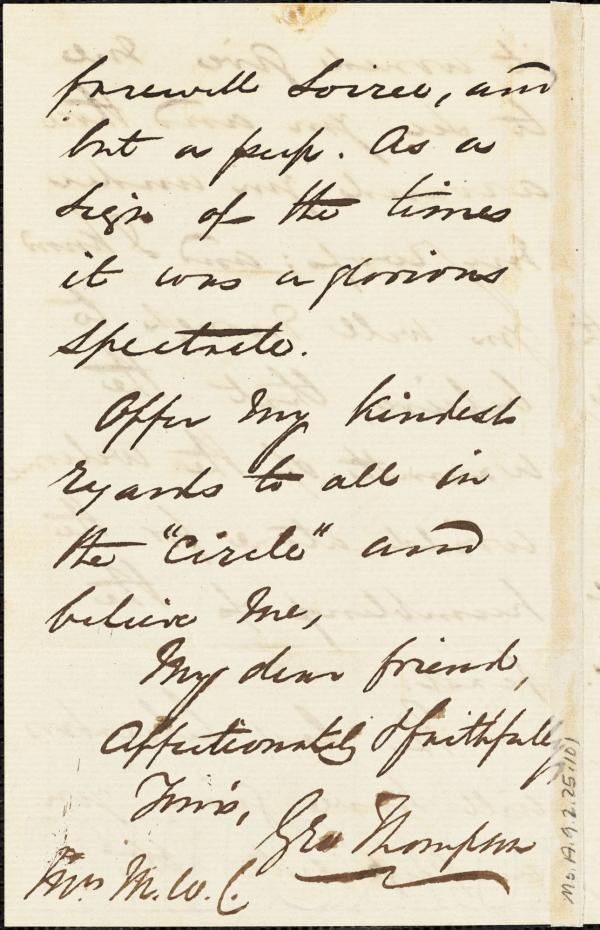 farewell Soiree, and
but a peep. As a
sign of the times
it was a glorious
spectacle.
Offer my kindest
regards to all in
the "Circle" and
believe me,
My dear friend,
Affectionately & faithfully
Yours,
Geo Thompson
Mrs M. W. C.
Ms. A. 9. 2. 25. 101